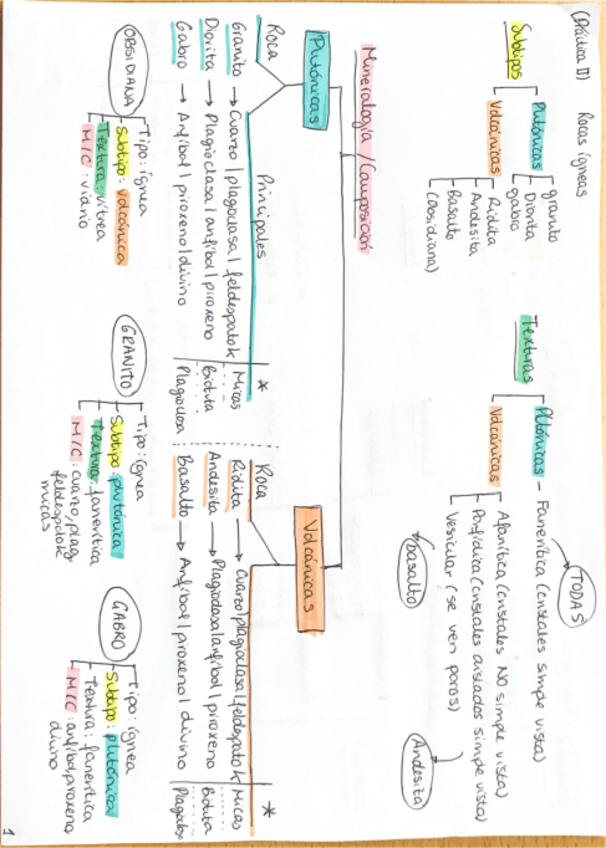 (Práctica II) Rocas ígneas
Subtipos
Plutónicas
granito
Diorita
gabro
Volcánicas
Riolita
Andesita
Basalto
(Obsidiana)
Texturas
Plutónicas – Fanerítica (cristales simple vista)
TODAS
Volcánicas
Afanítica (cristales NO simple vista)
Porfídica (cristales aislados simple vista)
Vesicular (se ven poros)
basalto
Andesita
Mineralogía / Composición
Plutónicas
Roca
Principales
*
Granito → Cuarzo / plagioclasa / feldespatok
Micas
Diorita → Plagioclasa / anfíbol / piroxeno
Biotita
Gabro → Anfíbol / piroxeno / olivino
Plagioclasa
Volcánicas
Roca
*
Riolita → Cuarzo / plagioclasa / feldespatok
Micas
Andesita → Plagioclasa / anfíbol / piroxeno
Biotita
Basalto → Anfíbol / piroxeno / olivino
OBSIDIANA
Tipo: ígnea
Subtipo: volcánica
Textura: vítrea
M/C: vidrio
GRANITO
Tipo: ígnea
Subtipo: plutónica
Textura: fanerítica
M/C: cuarzo, plag
feldespatok
micas
GABRO
Tipo: ígnea
Subtipo: plutónica
Textura: fanerítica
M/C: anfíbol piroxeno
olivino
1